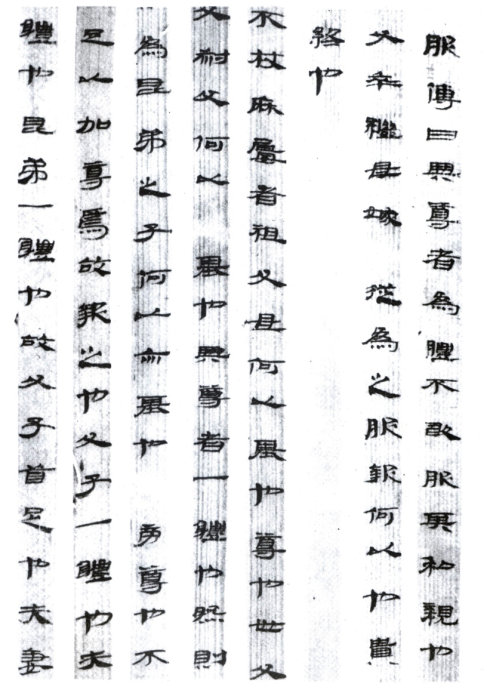 服傳曰與尊者為體不敢服其私親也
父卒繼母嫁 從為之服報何以也貴
終也
不杖麻屨者祖父母何以基也尊也世父
父叔父何以 基也與尊者一體也然則
為昆弟之子何以亦基也 旁尊也不
足以加尊焉故報之也父子一體也夫
體也昆弟一體也故父子首足也夫妻